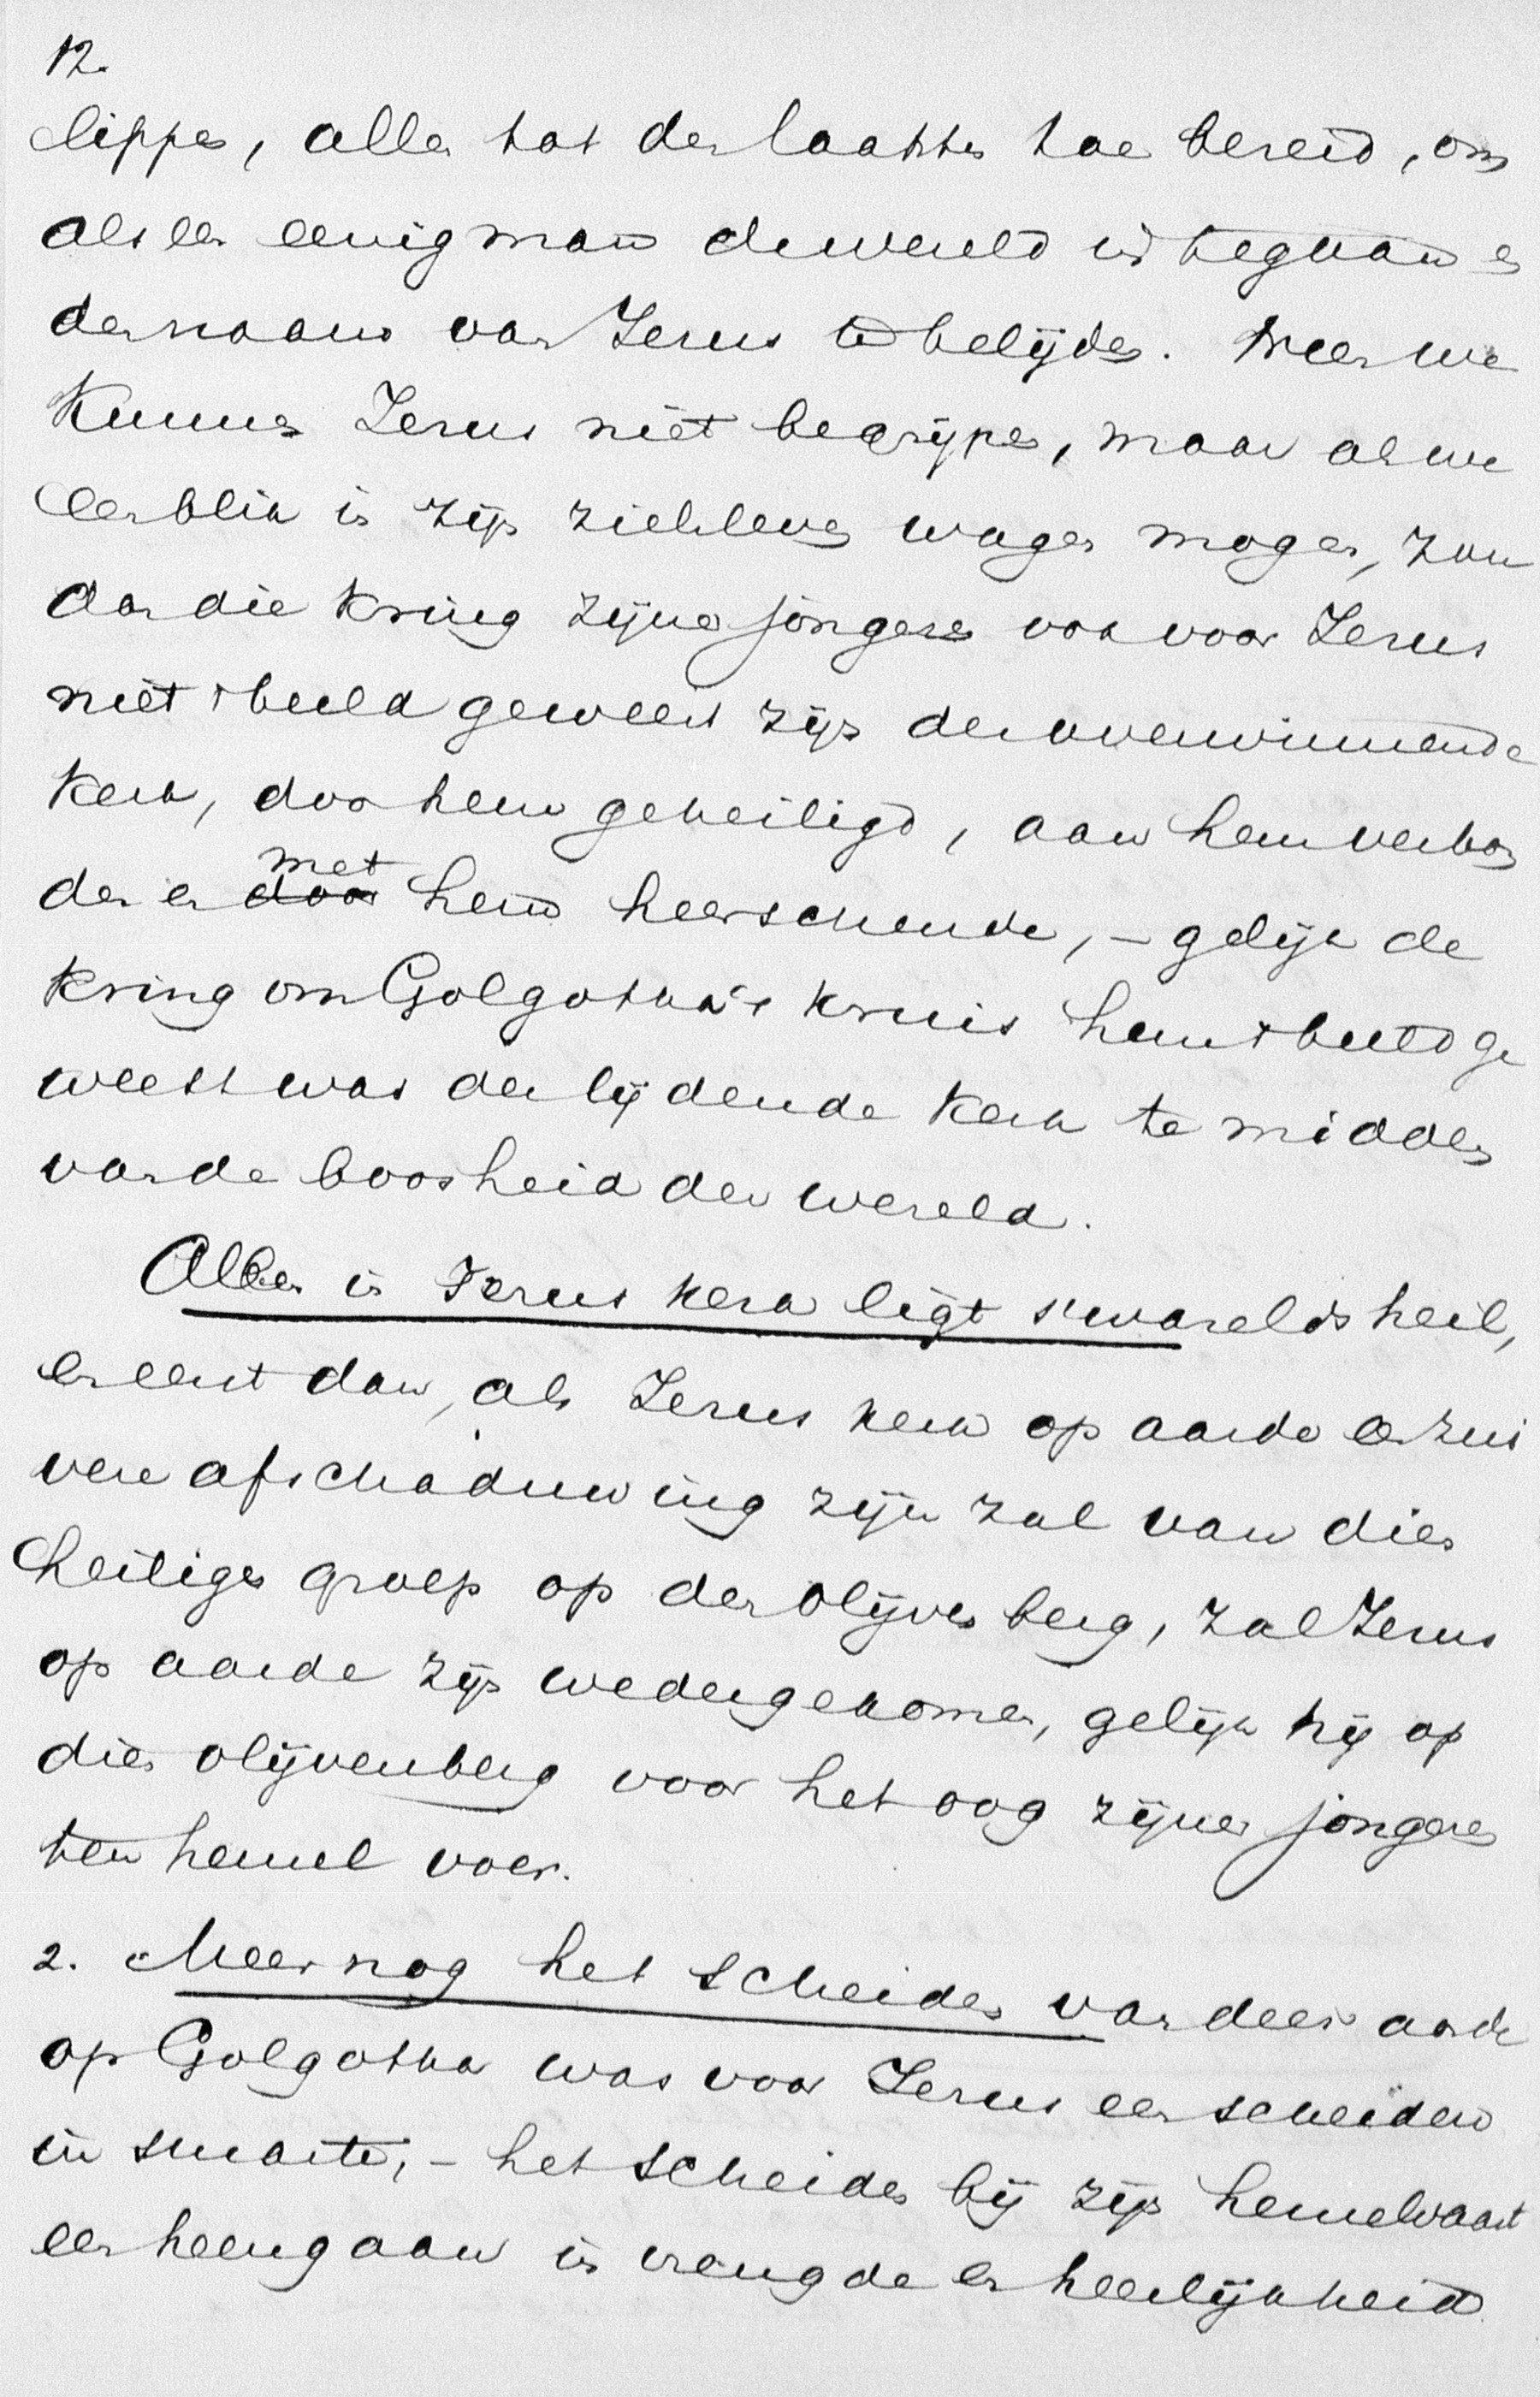 12.
lippen, allen tot den laatsten toe bereid, om
als een eenig man de wereld in te gaan en
den naam van Jezus te belijden. Neen we
kunnen Jezus niet begrijpen, maar als we
een blik in zijn zieleleven wagen mogen, zou
dan die kring zijner jongeren ook voor Jezus
niet 't beeld geweest zijn der overwinnende
kerk, door hem geheiligd, aan hem verbon
den en met hem heerschende, – gelijk de
kring om Golgotha's kruis hem 't beeld ge
weest was der lijdende kerk te midden
van de boosheid der wereld.
Alleen in Jezus kerk ligt 's werelds heil,
en eerst dan, als Jezus kerk op aarde een zui
vere afschaduwing zijn zal van dien
heiligen groep op den olijvenberg, zal Jezus
op aarde zijn wedergekomen, gelijk hij op
dien olijvenberg voor het oog zijner jongeren
ten hemel voer.
2. Meer nog het scheiden van deez' aarde
op Golgotha was voor Jezus een scheiden
in smarte, – het scheiden bij zijn hemelvaart
een heengaan in vreugde en heerlijkheid